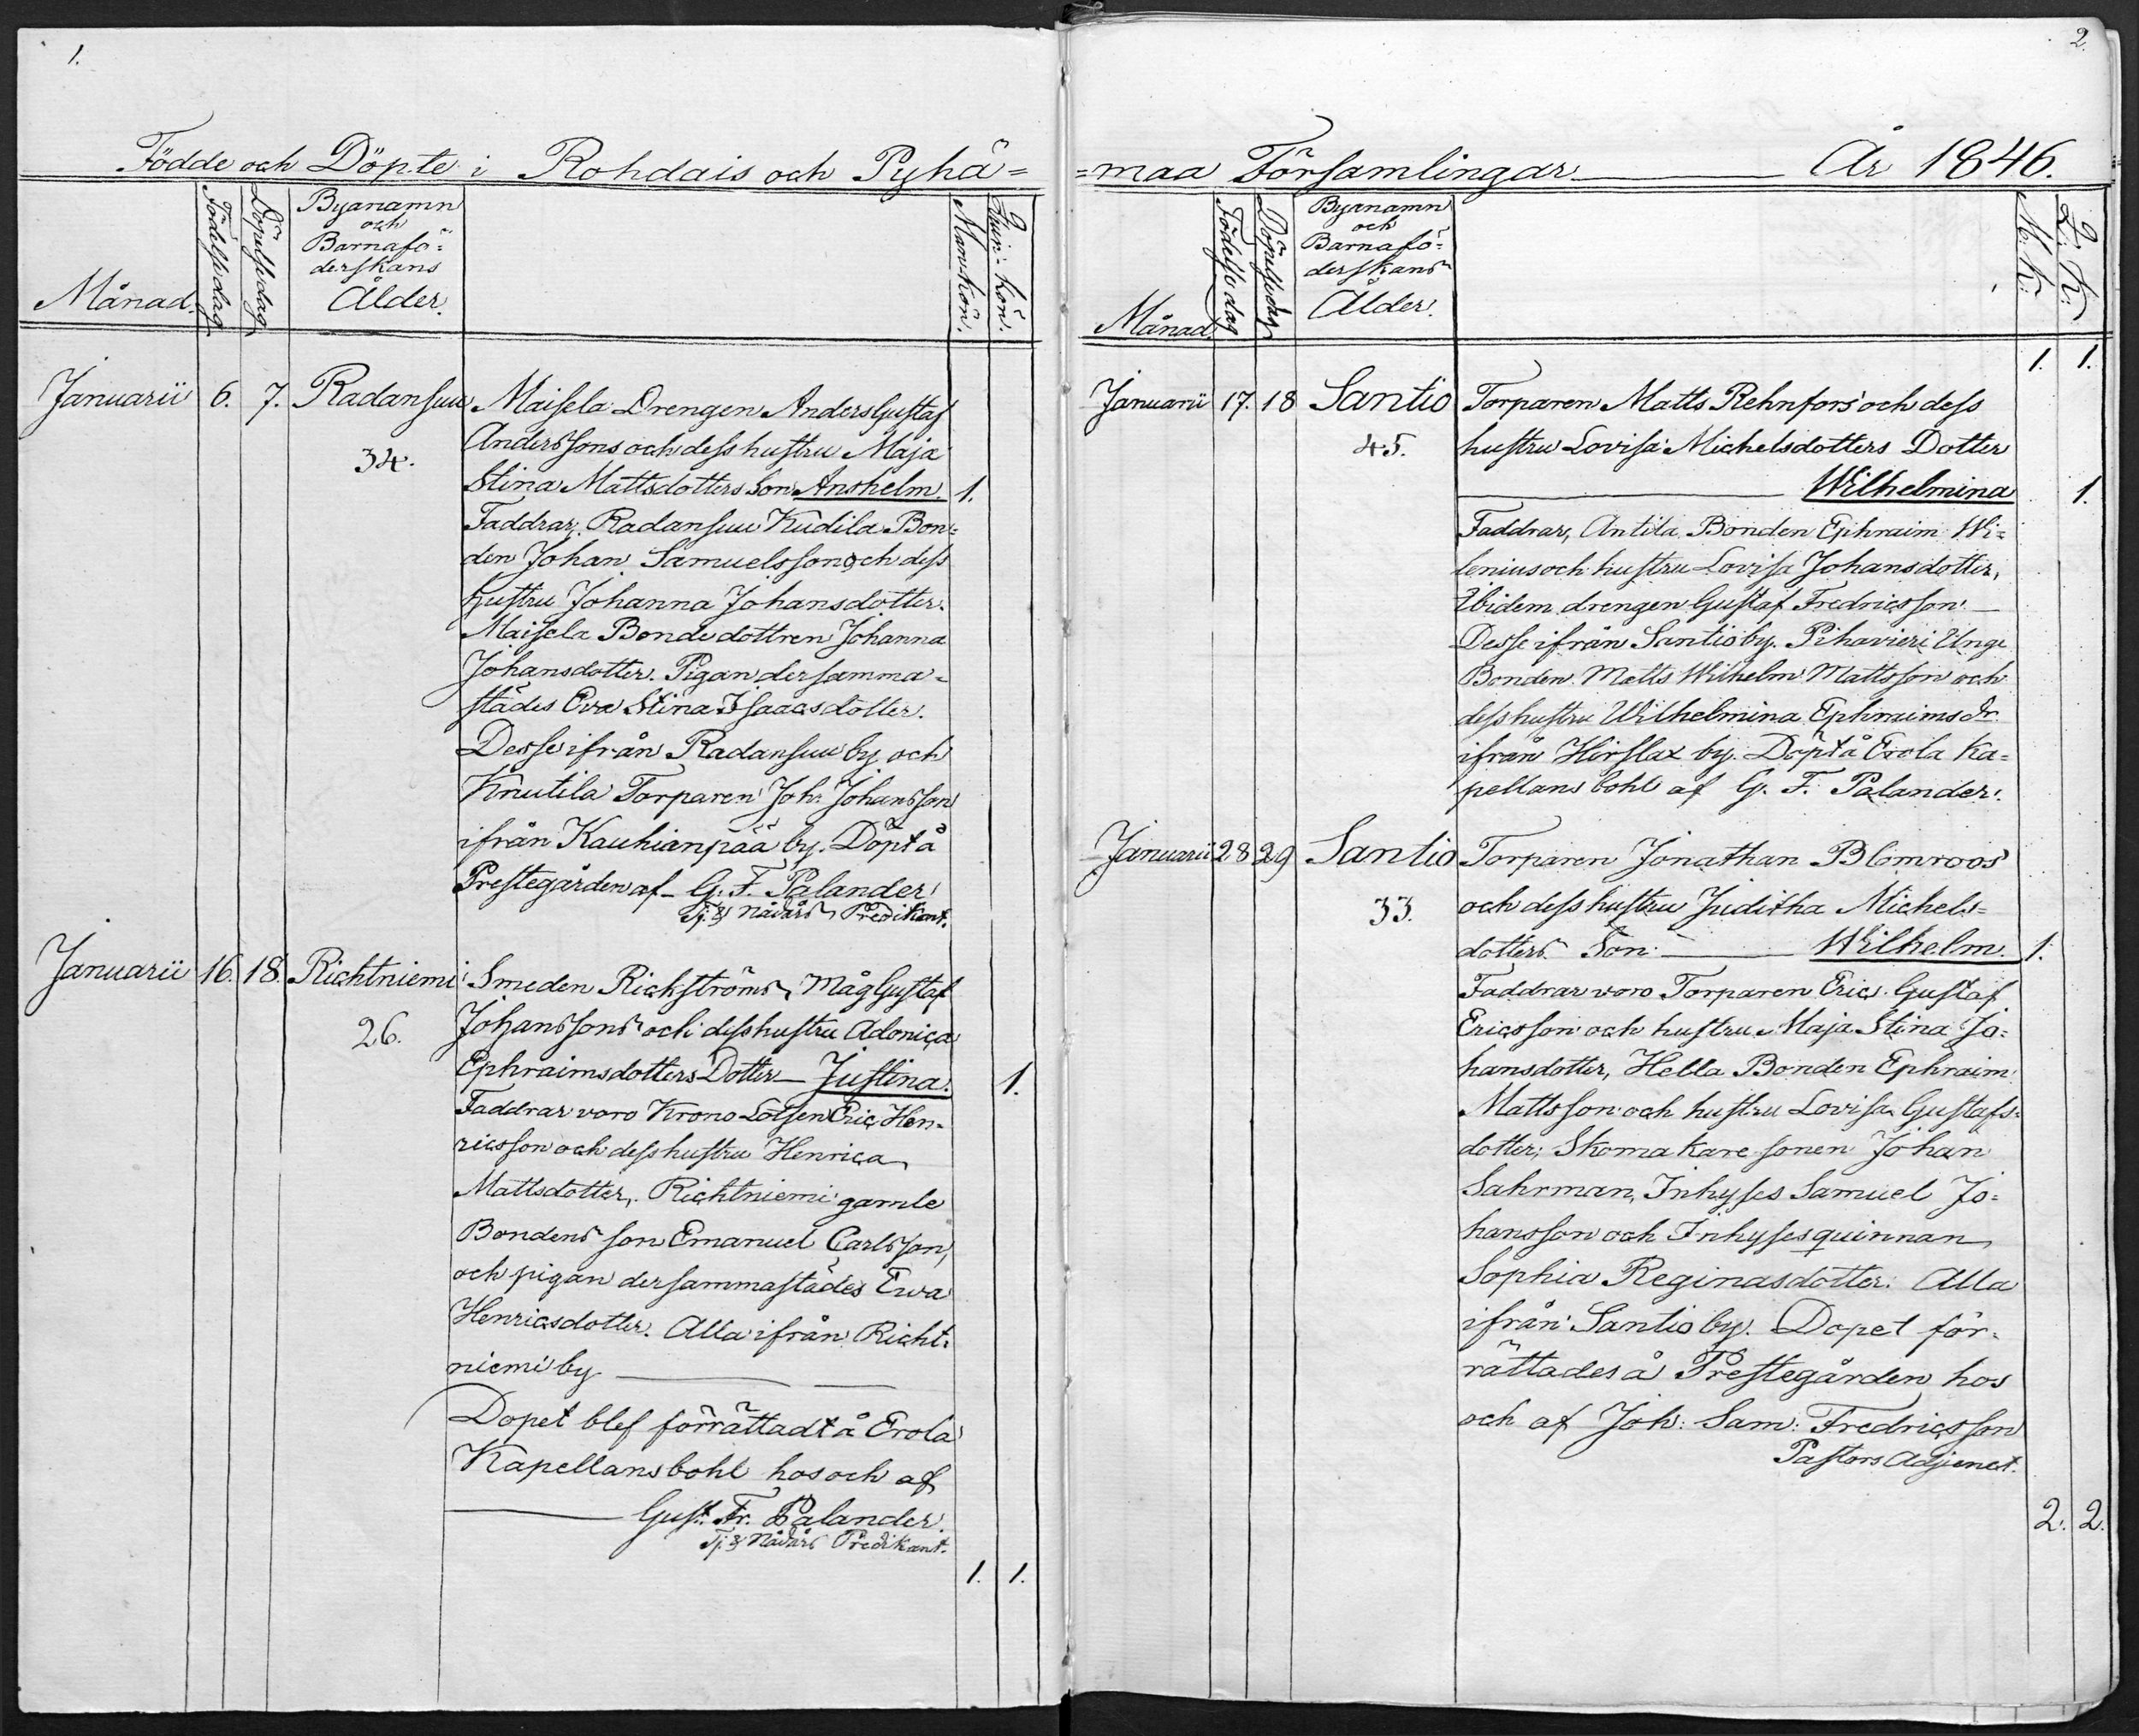 1.
Födde och Döpte i Rohdais och Pyhä=
Månad.
Födelsedag
Döpelsedag
Byanamn
och
Barnafö=
derskans
Ålder.
Mankön.
Quin: kön.
Januarii 6. 7. Radansuu Maisela Drengen Anders Gustaf
Anderssons och dess hustru Maja
34.
Stina Mattsdotters Son Anshelm. 1.
Faddrar, Radansuu Kudila Bon=
den Johan Samuelsson och dess
hustru Johanna Johansdotter.
Maisela Bondedottren Johanna
Johansdotter. Pigan dersamma=
städes Eva Stina Isaacsdotter.
Desse ifrån Radansuu by, och
Knutila Torparen Joh: Johansson
ifrån Kauhianpää by. Döpt å
Prestegården af G. F. Palander
Nådårs Predikant.
Januarii 16. 18. Richtniemi Smeden Rickströms Måg Gustaf
Johanssons och dess hustru Adonica
26.
Ephraimsdotters Dotter Justina. 1.
Faddrar voro Krono Lotsen Eric Hen=
ricsson och dess hustru Henrica
Mattsdotter, Richtniemi gamle
Bondens son Emanuel Carlsson,
och pigan dersammastädes Ewa
Henricsdotter. Alla ifrån Richt=
niemi by
Dopet blef förrättadt å Erola
Kapellansbohl hos och af
Gust. Fr. Palander.
Nådårs Predikant.
1. 1.
2.
=maa Församlingar År 1846.
Månad.
Födelsedag
Döpelsedag
Byanamn
och
Barnafö=
derskans
Ålder.
M. K:
Q. K:
1. 1.
Januarii 17. 18 Santio Torparen Matts Rehnfors och dess
45. hustru Lovisa Michelsdotters Dotter
Wilhelmina 1.
Faddrar, Antila Bonden Ephraim Wi=
lenius och hustru Lovisa Johansdotter,
Ibidem drengen Gustaf Fredricsson.
Desse ifrån Santio by. Pihavieri Unge
Bonden Matts Wilhelm Mattsson och
dess hustru Wilhelmina Ephraims dr.
ifrån Hirslax by. Döpt å Erola Ka=
pellans bohl af G. F. Palander.
Januarii 28 29 Santio Torparen Jonathan Blomroos
33. och dess hustru Juditha Michels=
dotters Son: Wilhelm. 1.
Faddrar voro Torparen Eric Gustaf
Ericsson och hustru Maja Stina Jo=
hansdotter, Hella Bonden Ephraim
Mattsson och hustru Lovisa Gustafs=
dotter, Skomakare sonen Johan
Sahrman, Inhyses Samuel Jo=
hansson och Inhyses quinnan
Sophia Reginasdotter. Alla
ifrån Santio by. Dopet för=
rättades å Prestegården hos
och af Joh: Sam: Fredricsson
Pastors Adjunct.
2. 2.